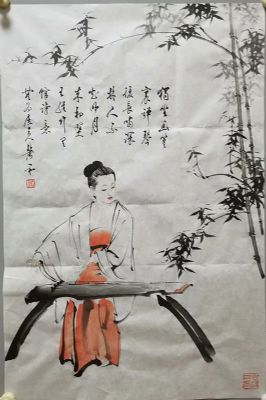 獨坐幽篁
裏彈琴
復長嘯深
林人不
知明月
来相照
王維竹里
館詩意